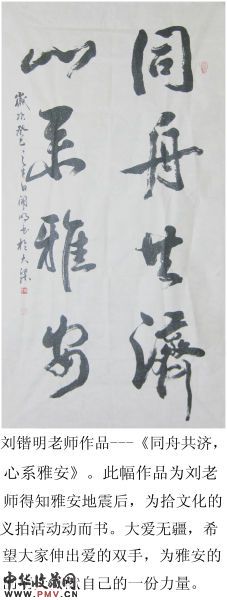 同舟共濟
心系雅安
歲次癸巳之春日明書於大梁
刘锴明老师作品---《同舟共济，
心系雅安》。此幅作品为刘老
师得知雅安地震后，为拾文化的
义拍活动动而书。大爱无疆，希
望大家伸出爱的双手，为雅安的
自己的一份力量。
中华收藏网
www.PMV.cn